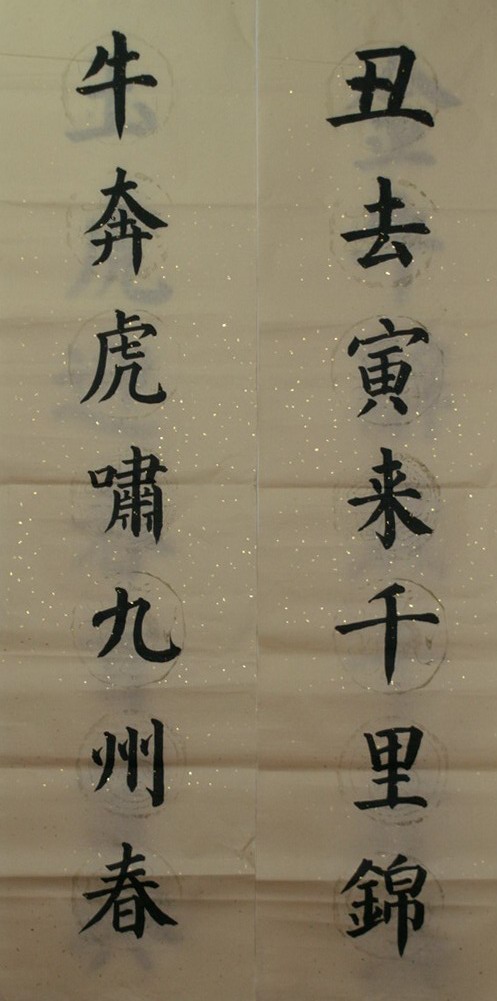 丑去寅来千里錦
牛奔虎嘯九州春